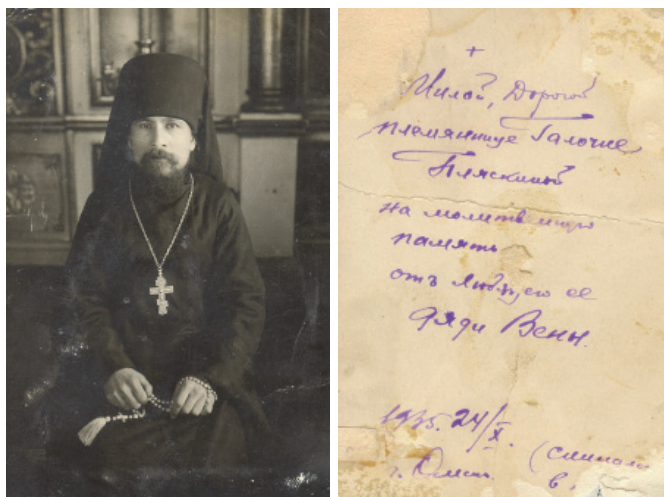 +
Милой, Дорогой
племяннице Галочке
Пляскиной
на молитвенную
память
отъ любящего ее
дяди Вени.
1935. 24/X.
г. Омск. (снимался
в.